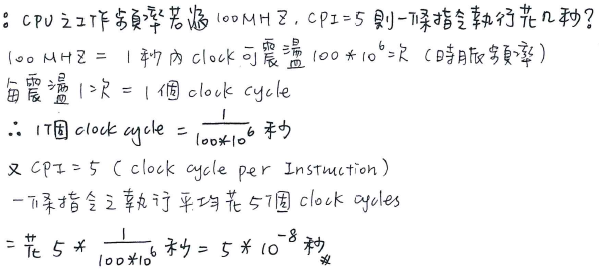 : CPU之工作頻率若為100MHZ, CPI=5 則一條指令執行花几秒?
100 MHZ = 1秒內clock可震盪 100*10⁶次 (時脈頻率)
每震盪1次 = 1個clock cycle
∴ 1個clock cycle = 1/100*10⁶ 秒
又 CPI=5 (clock cycle per Instruction)
一條指令之執行平均花5個clock cycles
= 花 5 * 1/100*10⁶ 秒 = 5 * 10⁻⁸ 秒 *